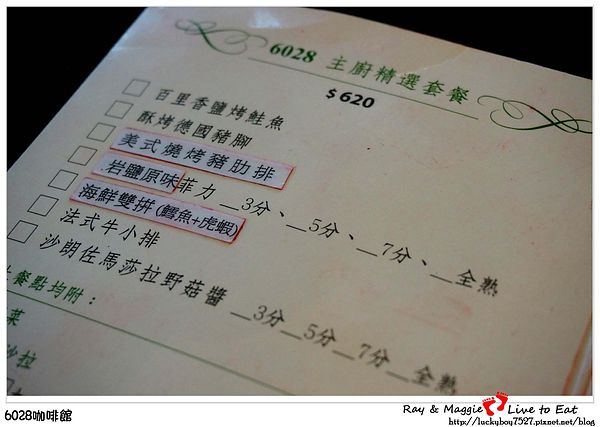 6028 主廚精選套餐
$620
百里香鹽烤鮭魚
酥烤德國豬腳
美式燒烤豬肋排
岩鹽原味菲力 __3分、__5分、__7分、__全熟
海鮮雙拼(鱈魚+虎蝦)
法式牛小排
沙朗佐馬莎拉野菇醬 __3分__5分__7分__全熟
餐點均附：
菜
沙拉
6028咖啡館
Ray & Maggie Live to Eat
http://luckyboy7527.pixnet.net/blog